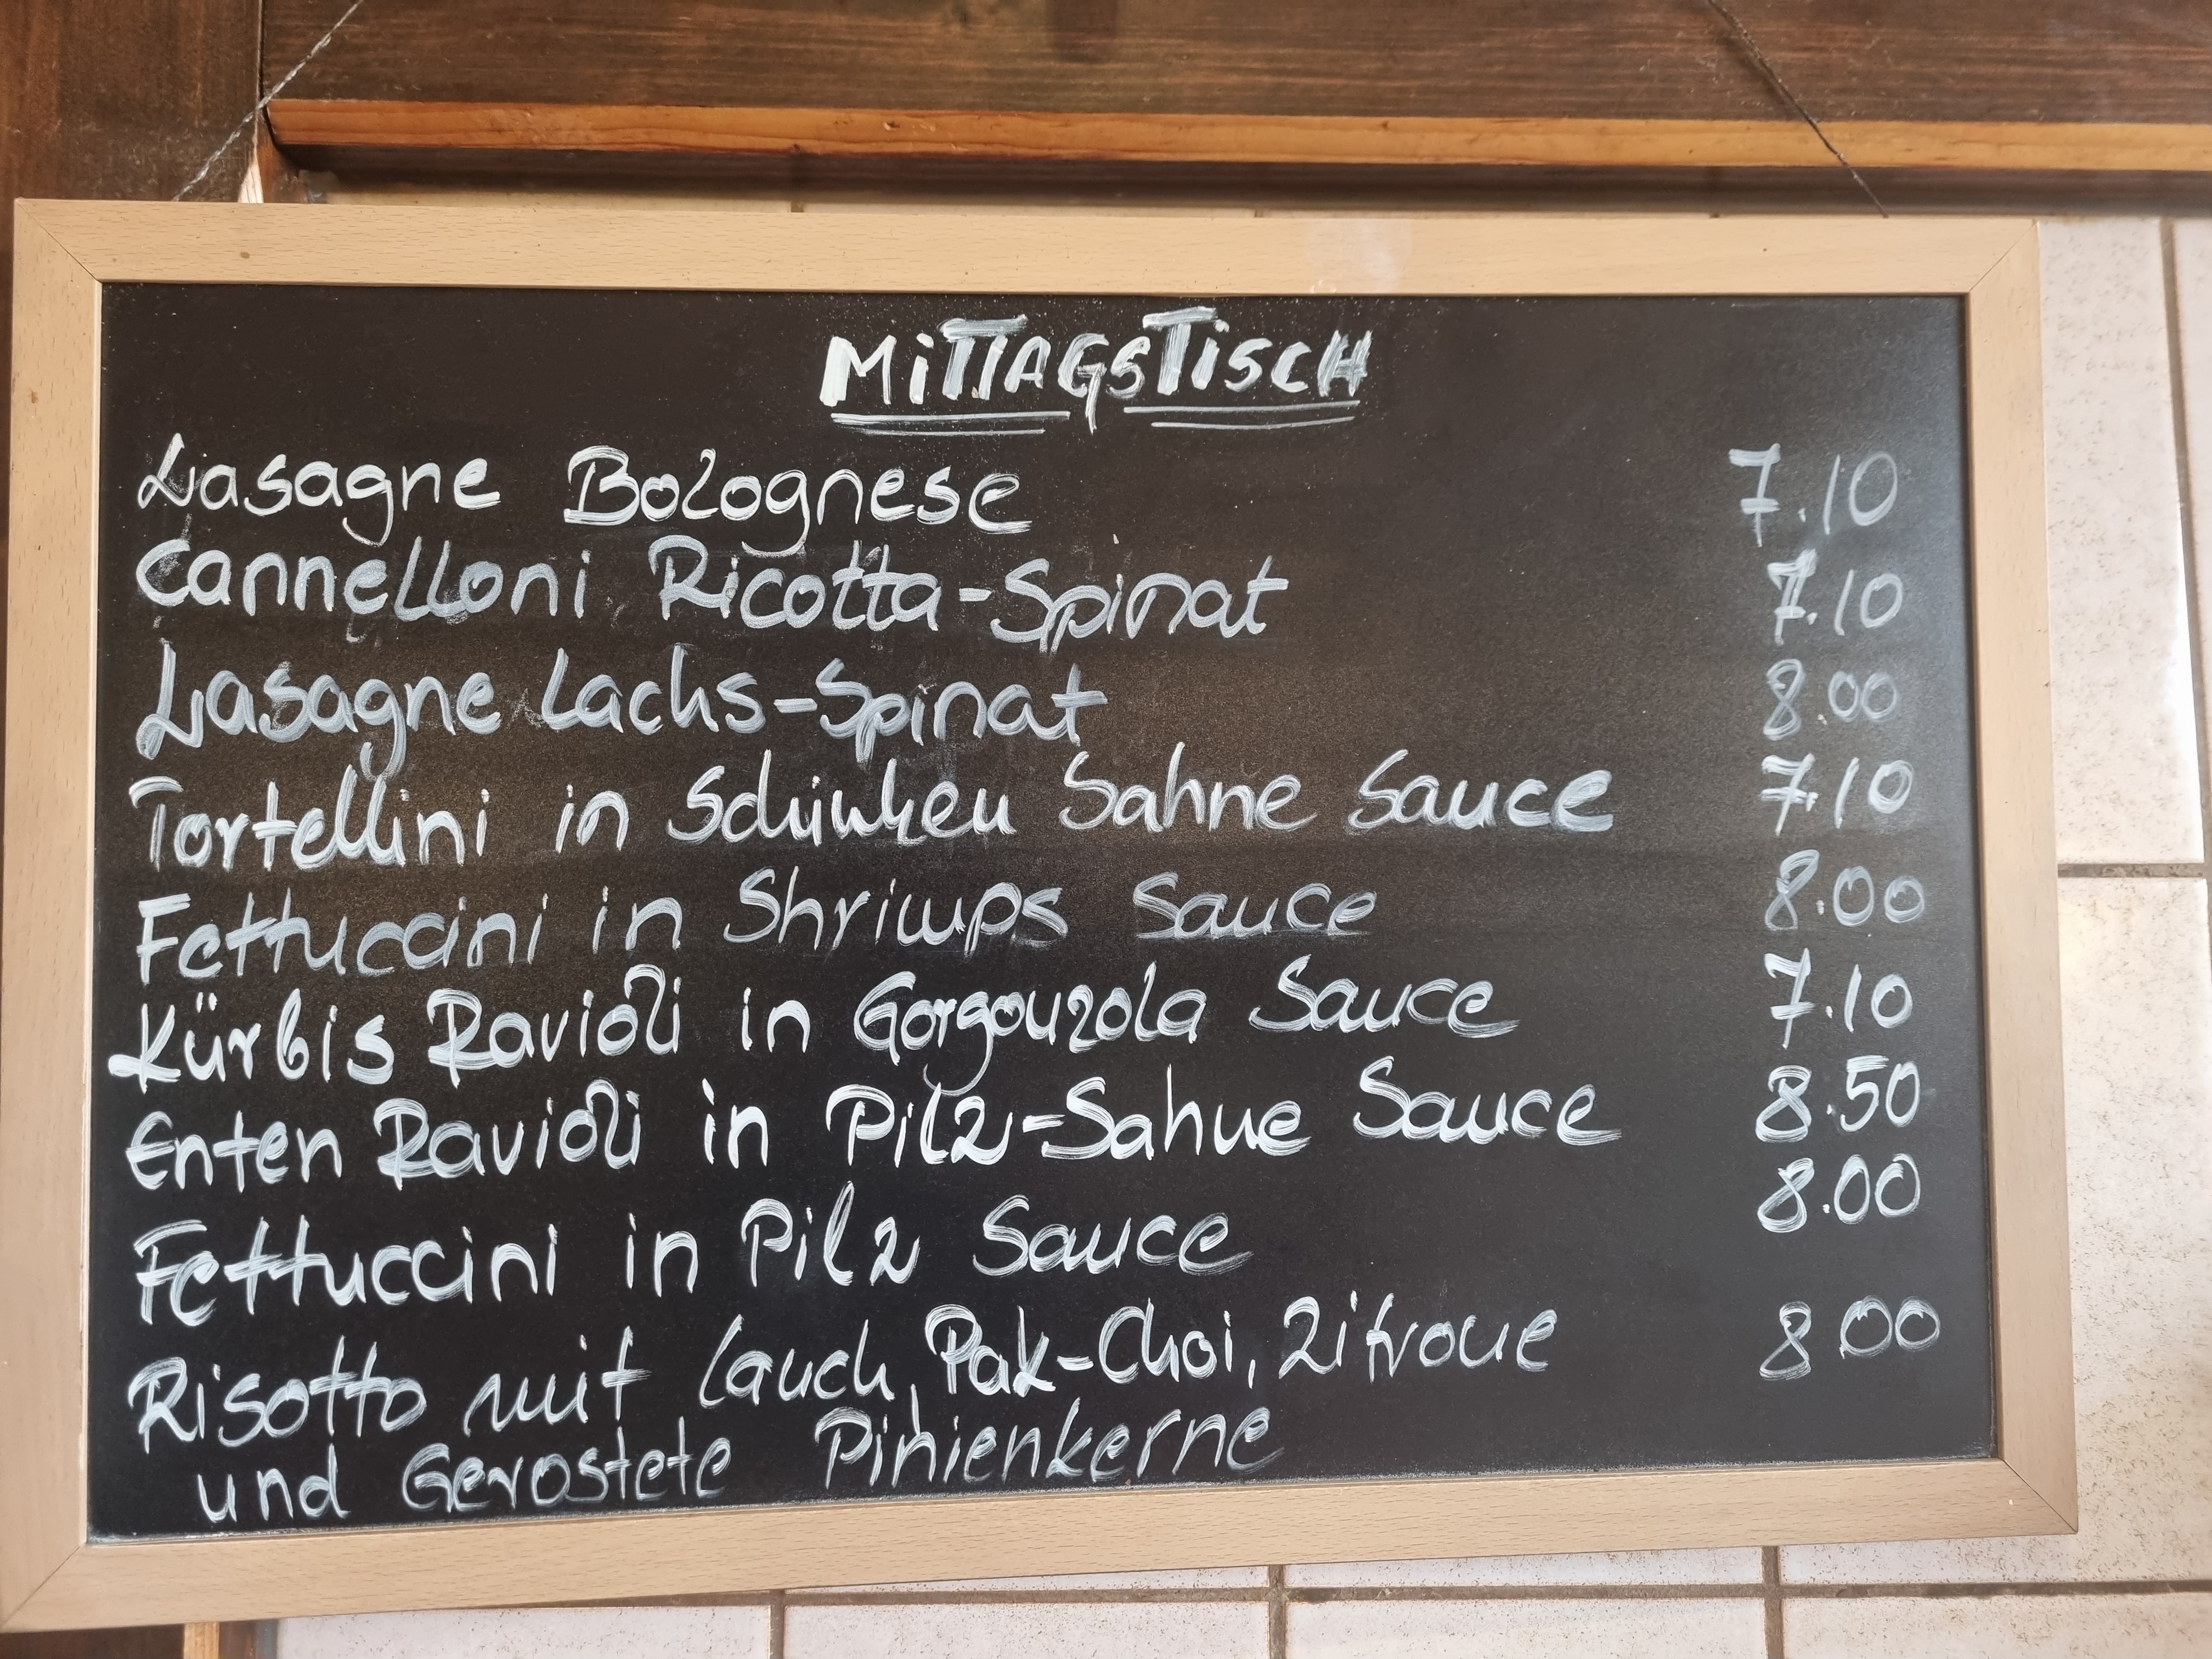 MiTTAGSTiSCH
Lasagne Bolognese 7.10
Cannelloni Ricotta-Spinat 7.10
Lasagne Lachs-Spinat 8.00
Tortellini in Schinken Sahne Sauce 7.10
Fettuccini in Shrimps Sauce 8.00
Kürbis Ravioli in Gorgonzola Sauce 7.10
Enten Ravioli in Pilz-Sahne Sauce 8.50
Fettuccini in Pilz Sauce 8.00
Risotto mit Lauch, Pak-Choi, Zitrone 8.00
und Gerostete Pinienkerne